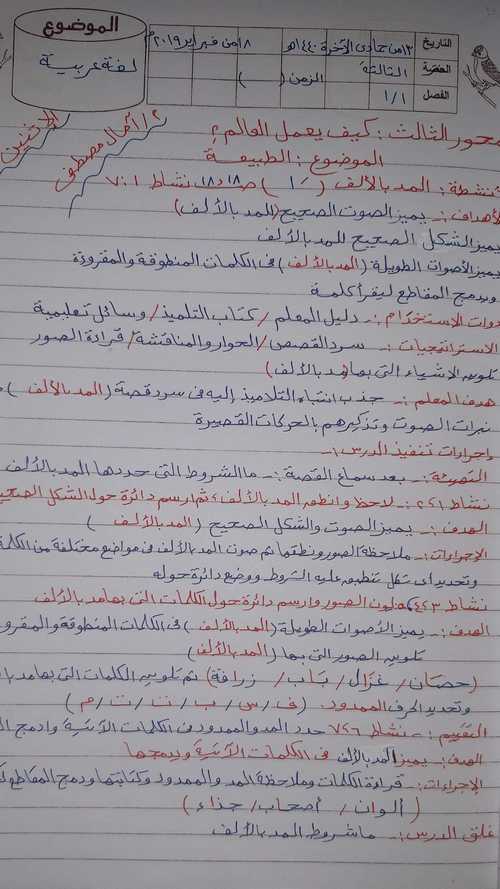 الموضوع
لغة عربية
التاريخ ١٣ من جمادى الآخرة ١٤٤٠هـ ١٨ من فبراير ٢٠١٩م
الحصة الثالثة الزمن ( )
الفصل ١/١
الإثنين
٢/ آمال مصطفى
محور الثالث : كيف يعمل العالم ؟
الموضوع : الطبيعة
أنشطة : المد بالألف ( ا ) ص ١٨ و ١٨ نشاط ١ : ٧
الأهداف :- يميز الصوت الصحيح (المد بالألف)
يميز الشكل الصحيح للمد بالألف
يميز الأصوات الطويلة (المد بالألف) فى الكلمات المنطوقة والمقروءة
ويدمج المقاطع ليقرأ كلمة
أدوات الاستخدام :- دليل المعلم / كتاب التلميذ / وسائل تعليمية
الاستراتيجيات :- سرد القصص / الحوار والمناقشة / قراءة الصور
تلوين الأشياء التى بها (مد بالألف)
هدف المعلم :- جذب انتباه التلاميذ إليه فى سرد قصة (المد بالألف)
نبرات الصوت وتذكيرهم بالحركات القصيرة
إجراءات تنفيذ الدرس :-
التهيئة :- بعد سماع القصة :- ما الشروط التى حددها المد بالألف
نشاط ١ ، ٢ :- لاحظ وانظر المد بالألف ، ثم ارسم دائرة حول الشكل الصحيح
الهدف :- يميز الصوت والشكل الصحيح (المد بالألف)
الإجراءات :- ملاحظة الصور ونطقها ثم صوت المد بالألف فى مواضع مختلفة من الكلمة
وتحديد أى شكل تنطبق عليه الشروط ووضع دائرة حوله
نشاط ٣ ، ٤ لون الصور وارسم دائرة حول الكلمات التى بها مد بالألف
الهدف :- يميز الأصوات الطويلة (المد بالألف) فى الكلمات المنطوقة والمقروءة
تلوين الصور التى بها (المد بالألف)
(حصان / غزال / باب / زرافة) ثم تلوين الكلمات التى بها مد
وتحديد الحرف الممدود. (ف / س / ب / ن / ت / م)
التقييم :- نشاط ٦ ، ٧ حدد المد والممدود فى الكلمات الآتية وادمج
الهدف :- يميز المد بالألف فى الكلمات الآتية ويدمجها
الإجراءات :- قراءة الكلمات وملاحظة المد والممدود وكتابتها ودمج المقاطع
( ألوان / أصحاب / حذاء )
غلق الدرس :- ما شروط المد بالألف